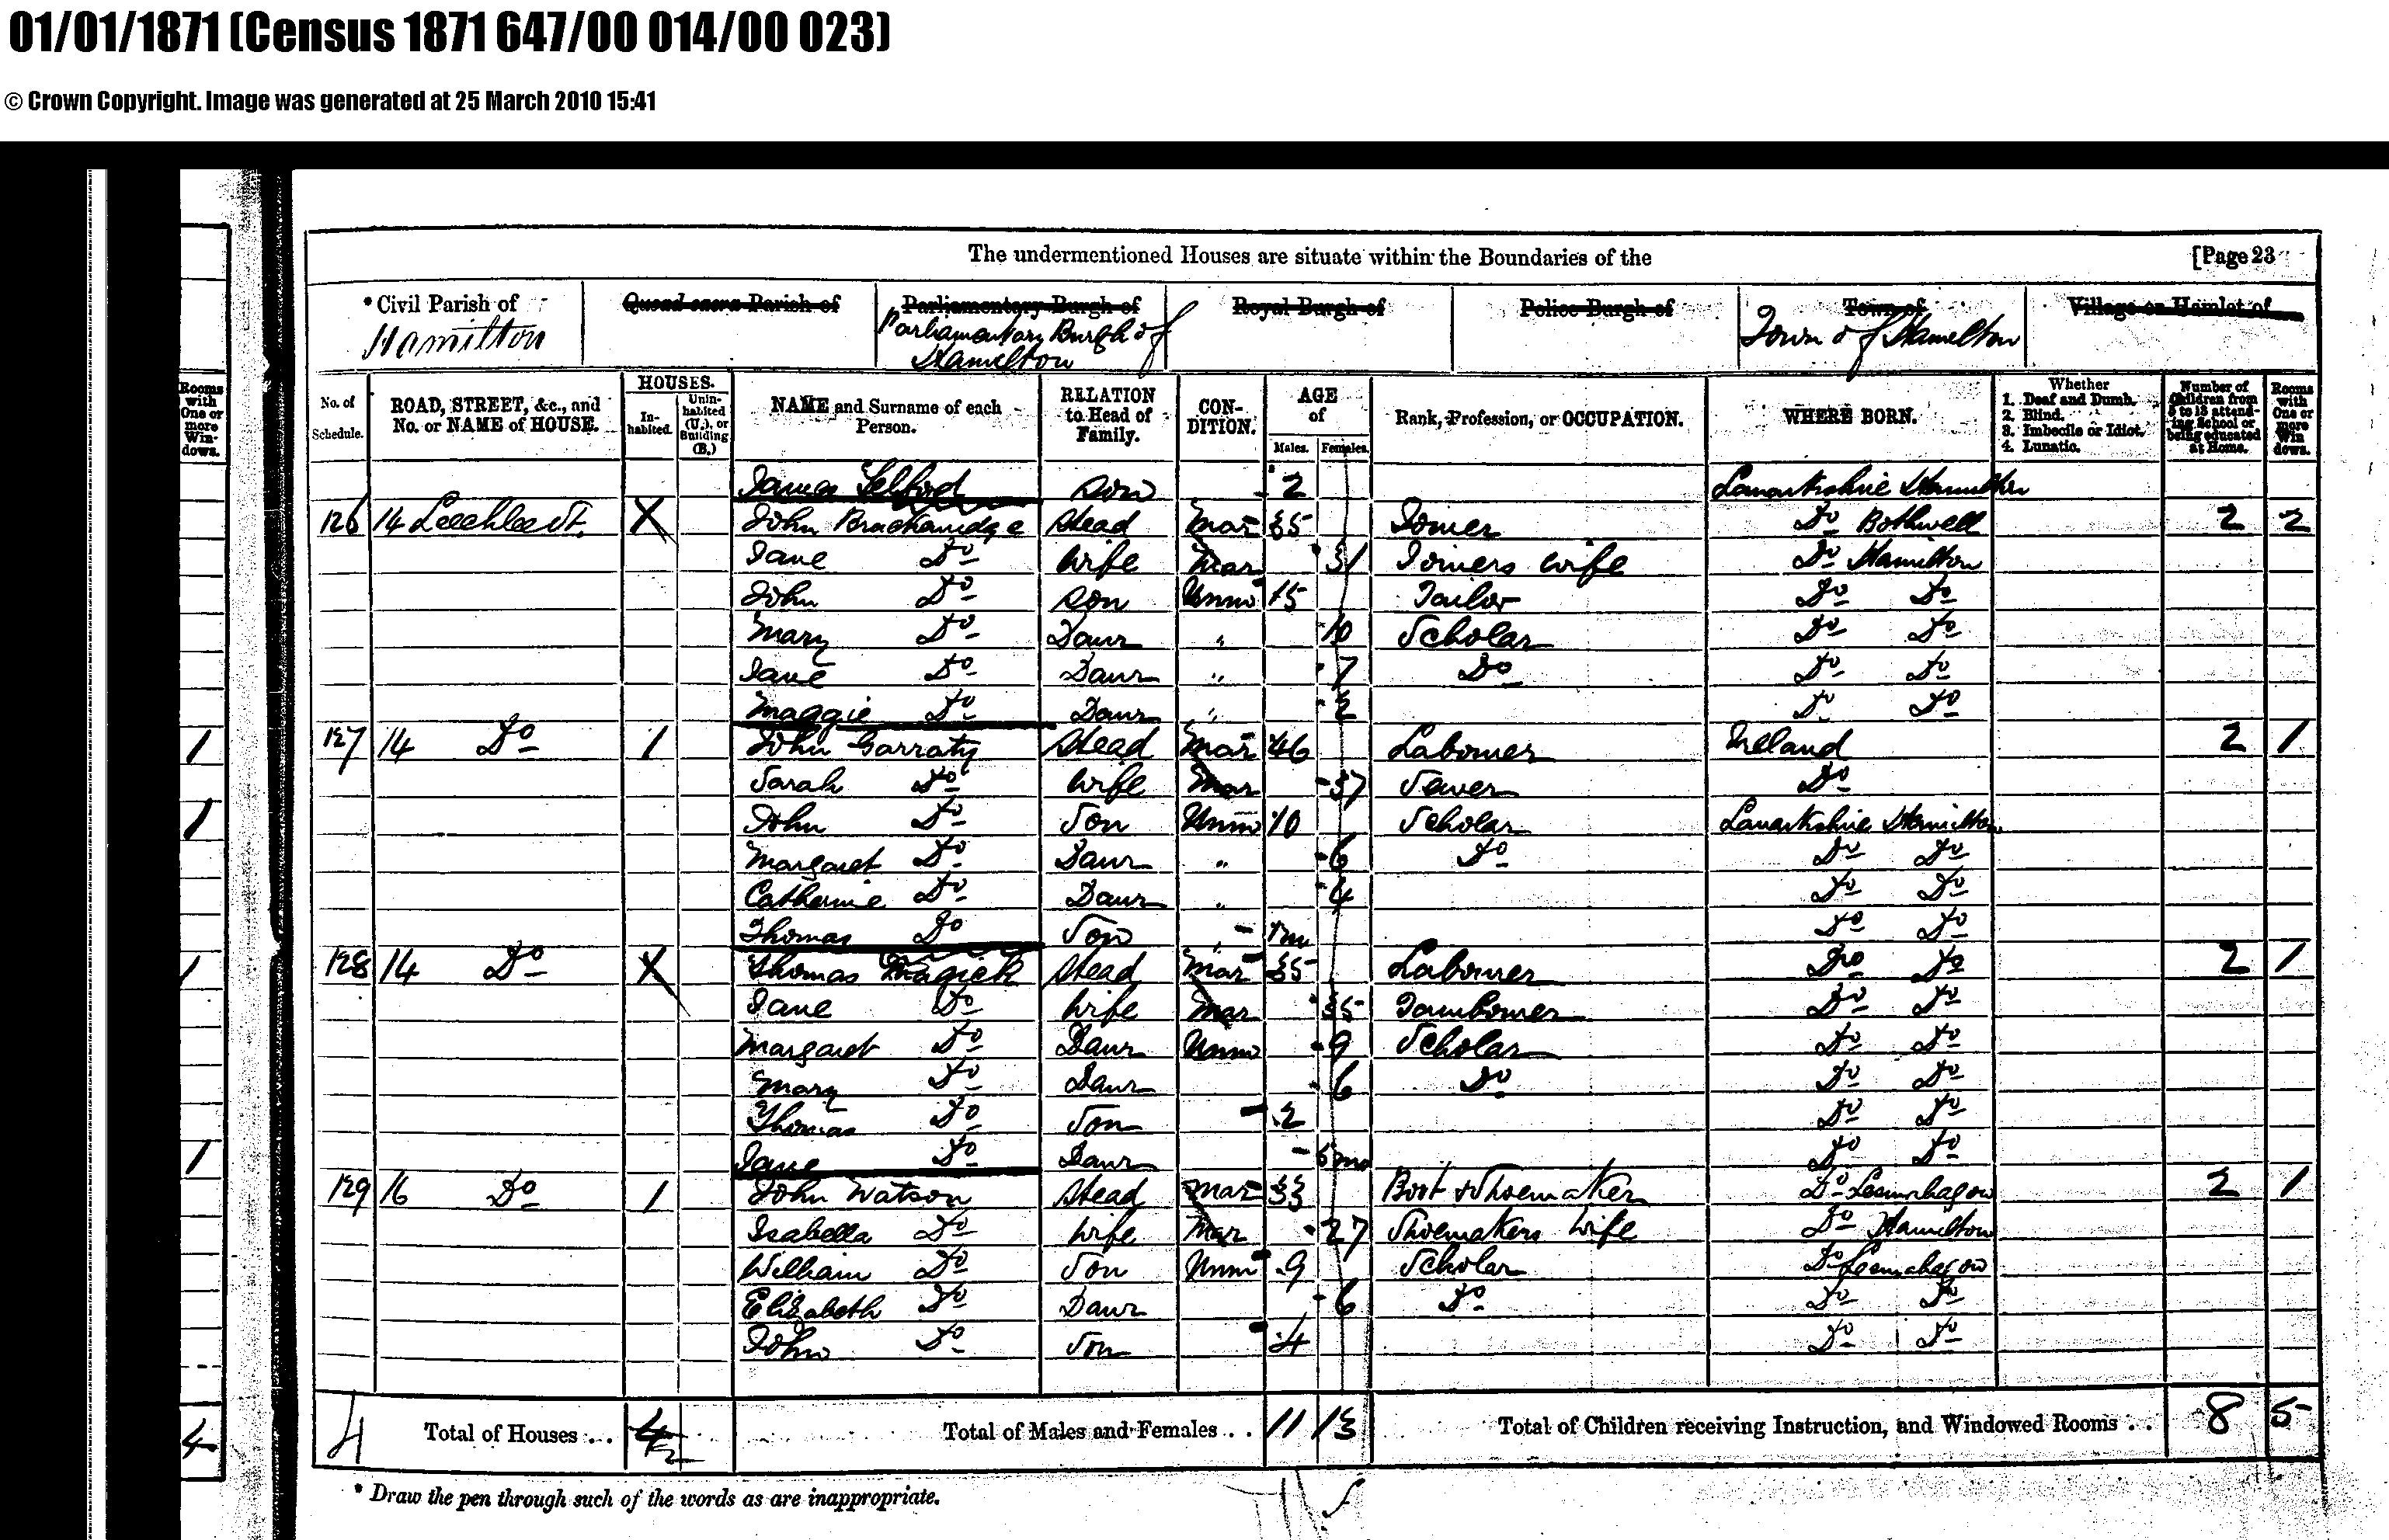 01/01/1871 (Census 1871 647/00 014/00 023)
© Crown Copyright. Image was generated at 25 March 2010 15:41
The undermentioned Houses are situate within the Boundaries of the [Page 23
* Civil Parish of Quoad sacra Parish of Parliamentary Burgh of Royal Burgh of Police Burgh of Town of Village or Hamlet of
Hamilton Parliamentary Burgh of Hamilton Town of Hamilton
Rooms with One or more Windows.
No. of Schedule. ROAD, STREET, &c., and No. or NAME of HOUSE. HOUSES. Inhabited. Uninhabited (U.), or Building (B.) NAME and Surname of each Person. RELATION to Head of Family. CONDITION. AGE of Males. Females. Rank, Profession, or OCCUPATION. WHERE BORN. Whether 1. Deaf and Dumb. 2. Blind. 3. Imbecile or Idiot. 4. Lunatic. Number of Children from 5 to 13 attending School or being educated at Home. Rooms with One or more Windows.
James Telford Son 2 Lanarkshire Hamilton
126 14 Leechlee St. X John Brackanridge Head Mar 35 Joiner Do Bothwell 2 2
Jane Do Wife Mar 31 Joiners wife Do Hamilton
John Do Son Unm 15 Tailor Do Do
Mary Do Daur " 10 Scholar Do Do
Jane Do Daur " 7 Do Do Do
Maggie Do Daur " 2 Do Do
1 127 14 Do 1 John Garraty Head Mar 46 Labourer Ireland 2 1
Sarah Do Wife Mar 37 Sewer Do
1 John Do Son Unm 10 Scholar Lanarkshire Hamilton
Margaret Do Daur " 6 Do Do Do
Catherine Do Daur " 4 Do Do
Thomas Do Son " 1m Do Do
1 128 14 Do X Thomas Head Mar 35 Labourer Do Do 2 1
Jane Do Wife Mar 35 Tambourer Do Do
Margaret Do Daur Unm 9 Scholar Do Do
Mary Do Daur 6 Do Do Do
Thomas Do Son 2 Do Do
1 Jane Do Daur 5mo Do Do
129 16 Do 1 John Watson Head Mar 33 Boot & Shoemaker Do Lesmahagow 2 1
Isabella Do Wife Mar 27 Shoemakers Wife Do Hamilton
William Do Son Unm 9 Scholar Do Lesmahagow
Elizabeth Do Daur 6 Do Do Do
John Do Son 4 Do Do
4 4 Total of Houses . . . 4 Total of Males and Females . . 11 13 Total of Children receiving Instruction, and Windowed Rooms . . 8 5
* Draw the pen through such of the words as are inappropriate.